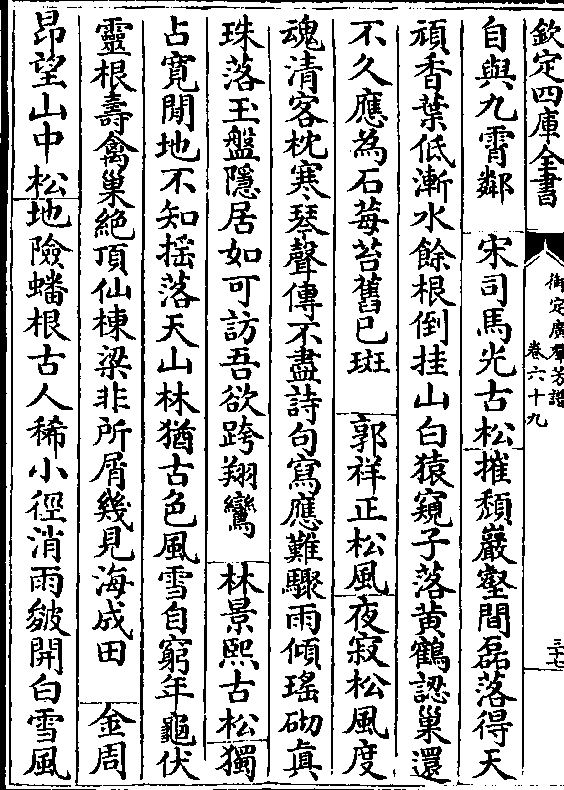 欽定四庫全書
御定廣羣芳譜
卷六十九
三十七
自與九霄鄰　宋司馬光古松摧頹巖壑間磊落得天
頑香葉低漸水餘根倒挂山白猿窺子落黄鶴認巢還
不久應為石莓苔舊已斑　郭祥正松風夜寂松風度
魂清客枕寒琴聲傳不盡詩句寫應難驟雨傾瑤砌真
珠落玉盤隱居如可訪吾欲跨翔鸞　林景熙古松獨
占寛閒地不知揺落天山林猶古色風雪自窮年龜伏
靈根壽禽巢絶頂仙棟梁非所屑幾見海成田　金周
昂望山中松地險蟠根古人稀小徑消雨皴開白雪風